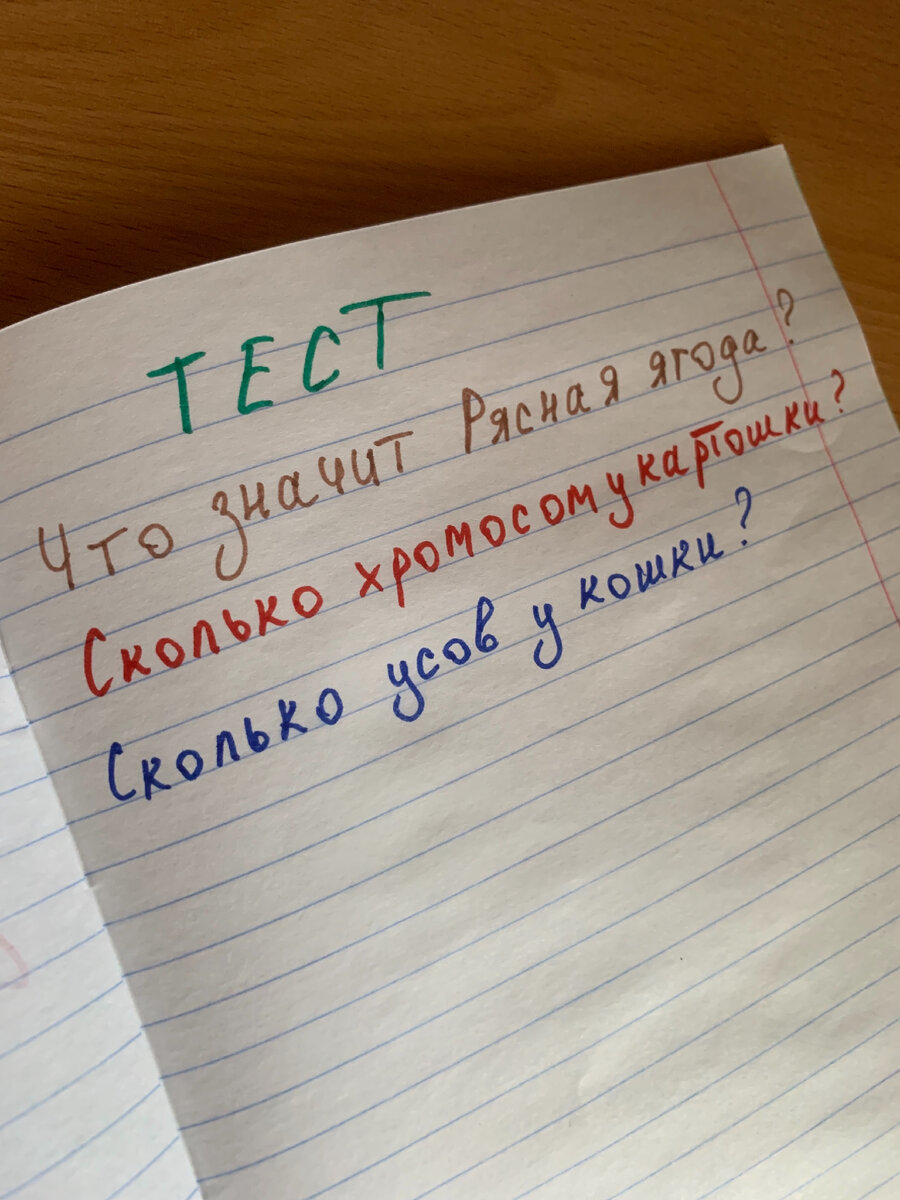 ТЕСТ
Что значит Рясная ягода?
Сколько хромосом у картошки?
Сколько усов у кошки?